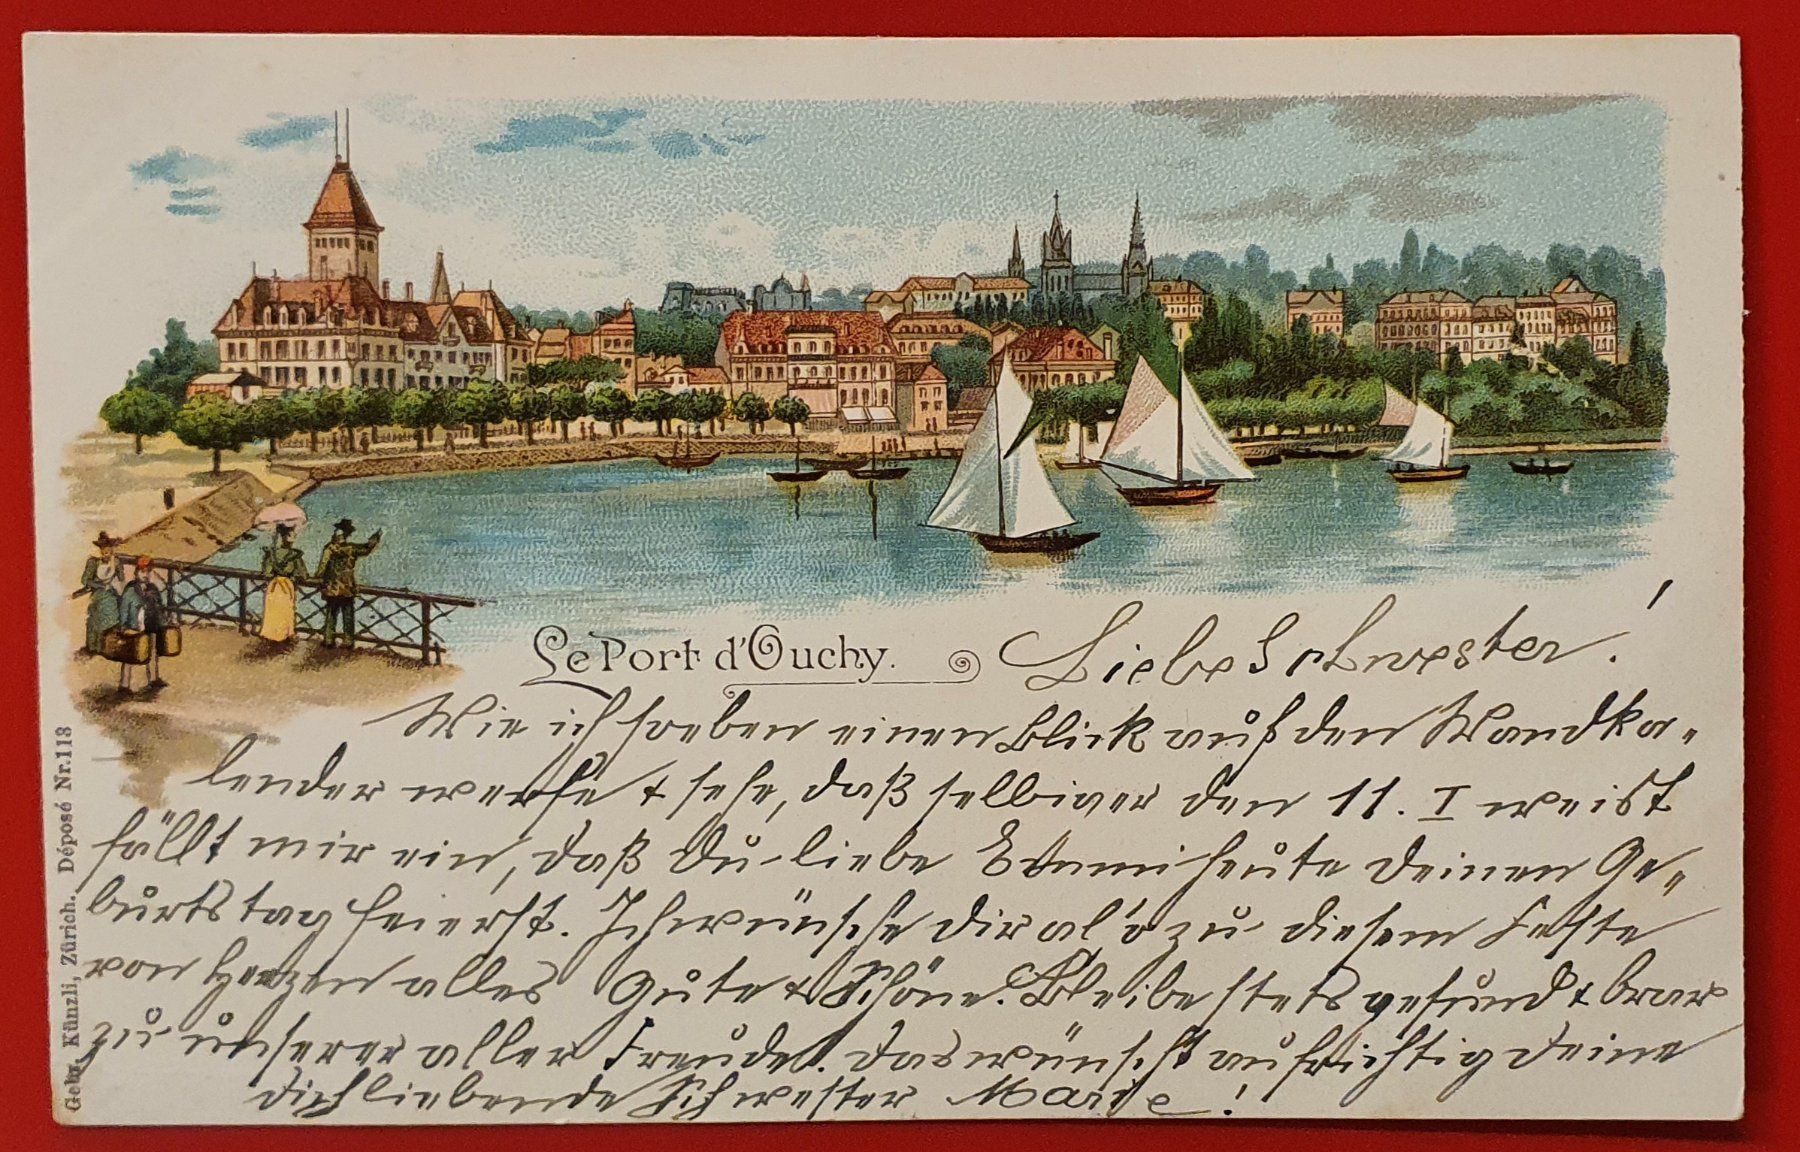 Le Port d'Ouchy.
Liebe Schwester!
Wie ich soeben einen Blick auf den Wandka-
lender werfe + sehe, daß selbiger den 11. I weist
fällt mir ein, daß Du liebe Emmi heute Deinen Ge-
burtstag feierst. Ich wünsche Dir also zu diesem Feste
von Herzen alles Gute + Schöne. Bleibe stets gesund + brav
zu unserer aller Freude. Das wünscht aufrichtig Deine
Dich liebende Schwester Marie!
Gebr. Künzli, Zürich. Déposé Nr. 113